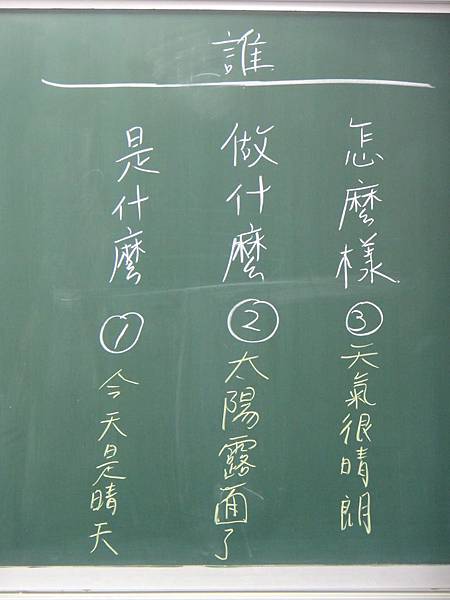 誰
是什麼
①
今天是晴天
做什麼
②
太陽露面了
怎麼樣
③
天氣很晴朗